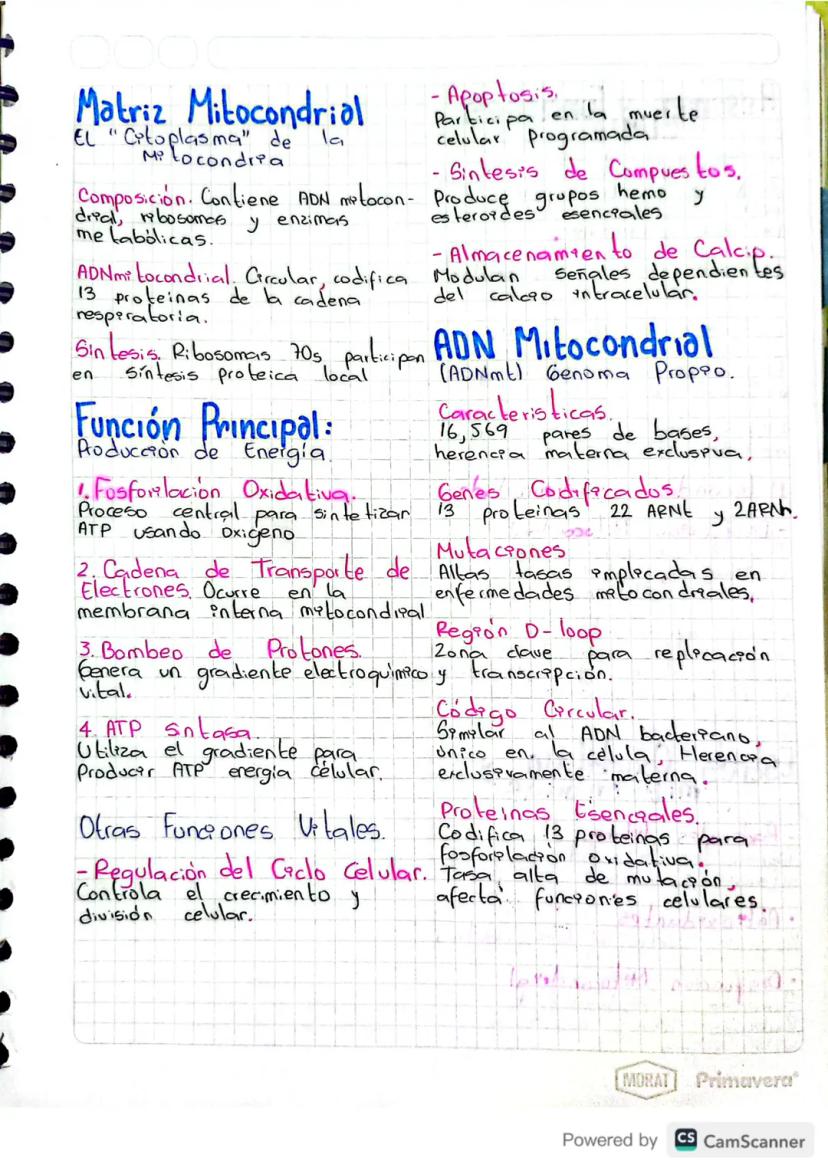 Matriz Mitocondrial
EL "Citoplasma" de la
Mitocondria
Composición. Contiene ADN mitocon-
drial, ribosomas y enzimas
metabólicas.
ADNmitocondrial. Circular, codifica
13 proteinas de la cadena
respiratoria.
Sintesis. Ribosomas 70s participan
en síntesis proteica local
Función Principal:
Producción de Energía
1. Fosforilación Oxidativa.
Proceso central para sintetizar
ATP usando oxígeno
2. Cadena de Transporte de
Electrones. Ocurre en la
membrana interna mitocondrial
3. Bombeo de Protones.
Genera un gradiente electroquímico
vital.
4. ATP sintasa.
Utiliza el gradiente para
Producir ATP energía célular.
Otras Funciones Vitales.
- Regulación del Ciclo Celular.
Controla el crecimiento y
división celular.
- Apoptosis.
Participa en la muerte
celular programada
- Sintesis de Compuestos.
Produce grupos hemo y
esteroides esenciales
- Almacenamiento de Calcio.
Modulan señales dependientes
del calcio intracelular.
ADN Mitocondrial
(ADNmt) Genoma Propio.
Caracteristicas.
16,569 pares de bases,
herencia materna exclusiva,
Genes Codificados.
13 proteinas 22 ARNt y 2ARNr.
Mutaciones
Altas tasas implicadas en
enfermedades mitocondriales.
Región D-loop
Zona clave para replicación
y transcripción.
Código Circular.
Similar al ADN bacteriano,
único en la célula, Herencia
exclusivamente materna.
Proteinas Esenciales.
Codifica 13 proteinas para
fosforilación oxidativa.
Tasa alta de mutación,
afecta funciones celulares.
MORAT Primavera
Powered by CS CamScanner